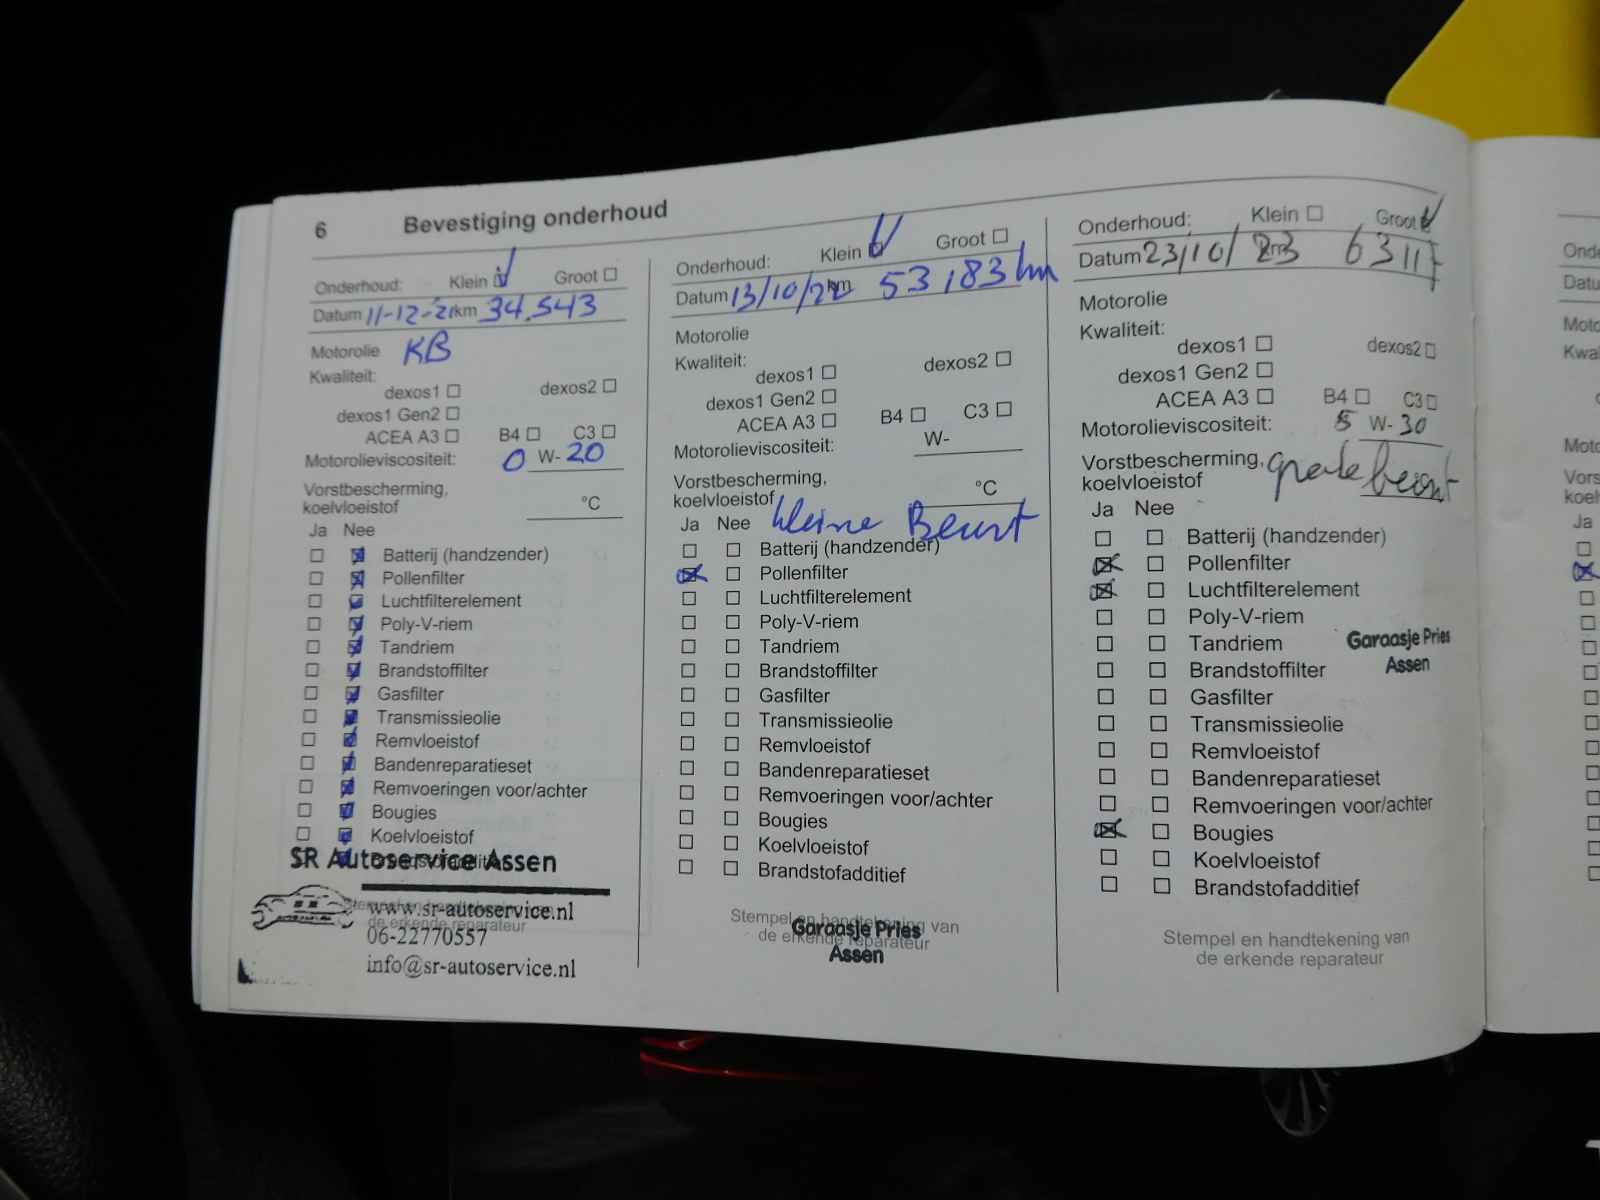 6 Bevestiging onderhoud
Onderhoud: Klein Groot
Datum 11-12-21 km 34.543
Motorolie KB
Kwaliteit:
dexos1 dexos2
dexos1 Gen2
ACEA A3 B4 C3
Motorolieviscositeit: 0 W- 20
Vorstbescherming,
koelvloeistof °C
Ja Nee
Batterij (handzender)
Pollenfilter
Luchtfilterelement
Poly-V-riem
Tandriem
Brandstoffilter
Gasfilter
Transmissieolie
Remvloeistof
Bandenreparatieset
Remvoeringen voor/achter
Bougies
Koelvloeistof
SR Autoservice Assen
Stempel en handtekening van
de erkende reparateur
www.sr-autoservice.nl
06-22770557
info@sr-autoservice.nl
Onderhoud: Klein Groot
Datum 13/10/22 km 53183 km
Motorolie
Kwaliteit:
dexos1 dexos2
dexos1 Gen2
ACEA A3 B4 C3
Motorolieviscositeit: W-
Vorstbescherming,
koelvloeistof °C
Ja Nee kleine Beurt
Batterij (handzender)
Pollenfilter
Luchtfilterelement
Poly-V-riem
Tandriem
Brandstoffilter
Gasfilter
Transmissieolie
Remvloeistof
Bandenreparatieset
Remvoeringen voor/achter
Bougies
Koelvloeistof
Brandstofadditief
Stempel en handtekening van
de erkende reparateur
Garaasje Pries
Assen
Onderhoud: Klein Groot
Datum 23/10/23 km 63117
Motorolie
Kwaliteit:
dexos1 dexos2
dexos1 Gen2
ACEA A3 B4 C3
Motorolieviscositeit: 5 W- 30
Vorstbescherming,
koelvloeistof grote beurt
Ja Nee
Batterij (handzender)
Pollenfilter
Luchtfilterelement
Poly-V-riem
Tandriem
Garaasje Pries
Assen
Brandstoffilter
Gasfilter
Transmissieolie
Remvloeistof
Bandenreparatieset
Remvoeringen voor/achter
Bougies
Koelvloeistof
Brandstofadditief
Stempel en handtekening van
de erkende reparateur
Ja